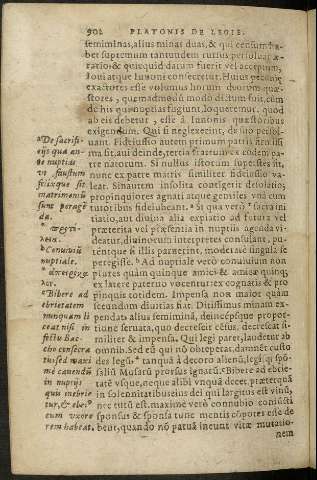 902 PLATONIS DE LEGIB.
semiminas, alius minas duas, & qui censum ha-
bet supremum tantundem rursus persoluat, æ-
ratio: & quicquid datum fuerit vel acceptum,
Ioui atque Iunoni consecretur. Huius pecuniæ
exactores esse volumus horum deorum quæ-
stores, quemadmodum modò dictum fuit, cùm
de his qui nuptias fugiunt, loqueremur. quod
ab eis debetur, esse à Iunonis quæstoribus
exigendum. Qui si neglexerint, de suo persol-
uant. Fideiussio autem primùm patris, rata sit
aut aui deinde, tertia fratrum ex eodem pa-
tre natorum. Si nullus istorum superstes sit,
nunc ex parte matris similiter fideiussio va-
leat. Sin autem insolita contigerit desolatio,
propinquiores agnati atque gentiles vnà cum
tutoribus fideiubeant. Si qua verò sacra ini-
tiatio, aut diuina alia expiatio ad futura vel
præterita vel præsentia in nuptiis agenda vi-
deatur, diuinorum interpretes consulant, pu-
tentque si illis paruerint, moderatè singula se
peregisse. Ad nuptiale verò conuiuium non
plures quàm quinque amici & amicæ quinque,
ex latere paterno vocentur: ex cognatis & pro
pinquis totidem. Impensa non maior quàm
secundum diuitias fiat. Ditissimus minam ex-
pendat: alius semiminam, deincépsque propor-
tione seruata, quo decrescit census, decrescat si-
militer & impensa. Qui legi paret, laudetur ab
omnibus. Sed eū qui nō obtemperat, damnēt custo
des legum tanquā à decoro alienū, legiq; spō-
saliū Musarū prorsus ignarū. Bibere ad ebrie-
tatē vsque, neque alibi vnquā decet, præterquā
in solennitatibus eius dei qui largitus est vinū,
nec tutū est. maximè verò connubio cōiuncti
sponsus & sponsa tunc mentis cōpotes esse de
bent, quando nō paruā ineunt vitæ mutatio-
nem
De sacrifi-
ciis quæ an-
te nuptias
vt faustum
felixque sit
matrimoniū
sunt perage
da.
Conuiuiū
nuptiale.
Bibere ad
ebrietatem
nunquam li
ceat nisi in
festis Bac-
cho consecra
tis: sed maxi
mè cauendū
in nuptiis
quis inebrie
tur, & ebri
cum vxore
rem habeat.